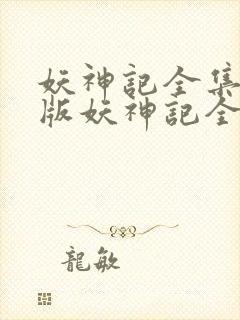 妖神記全集
版妖神記全
龍敏